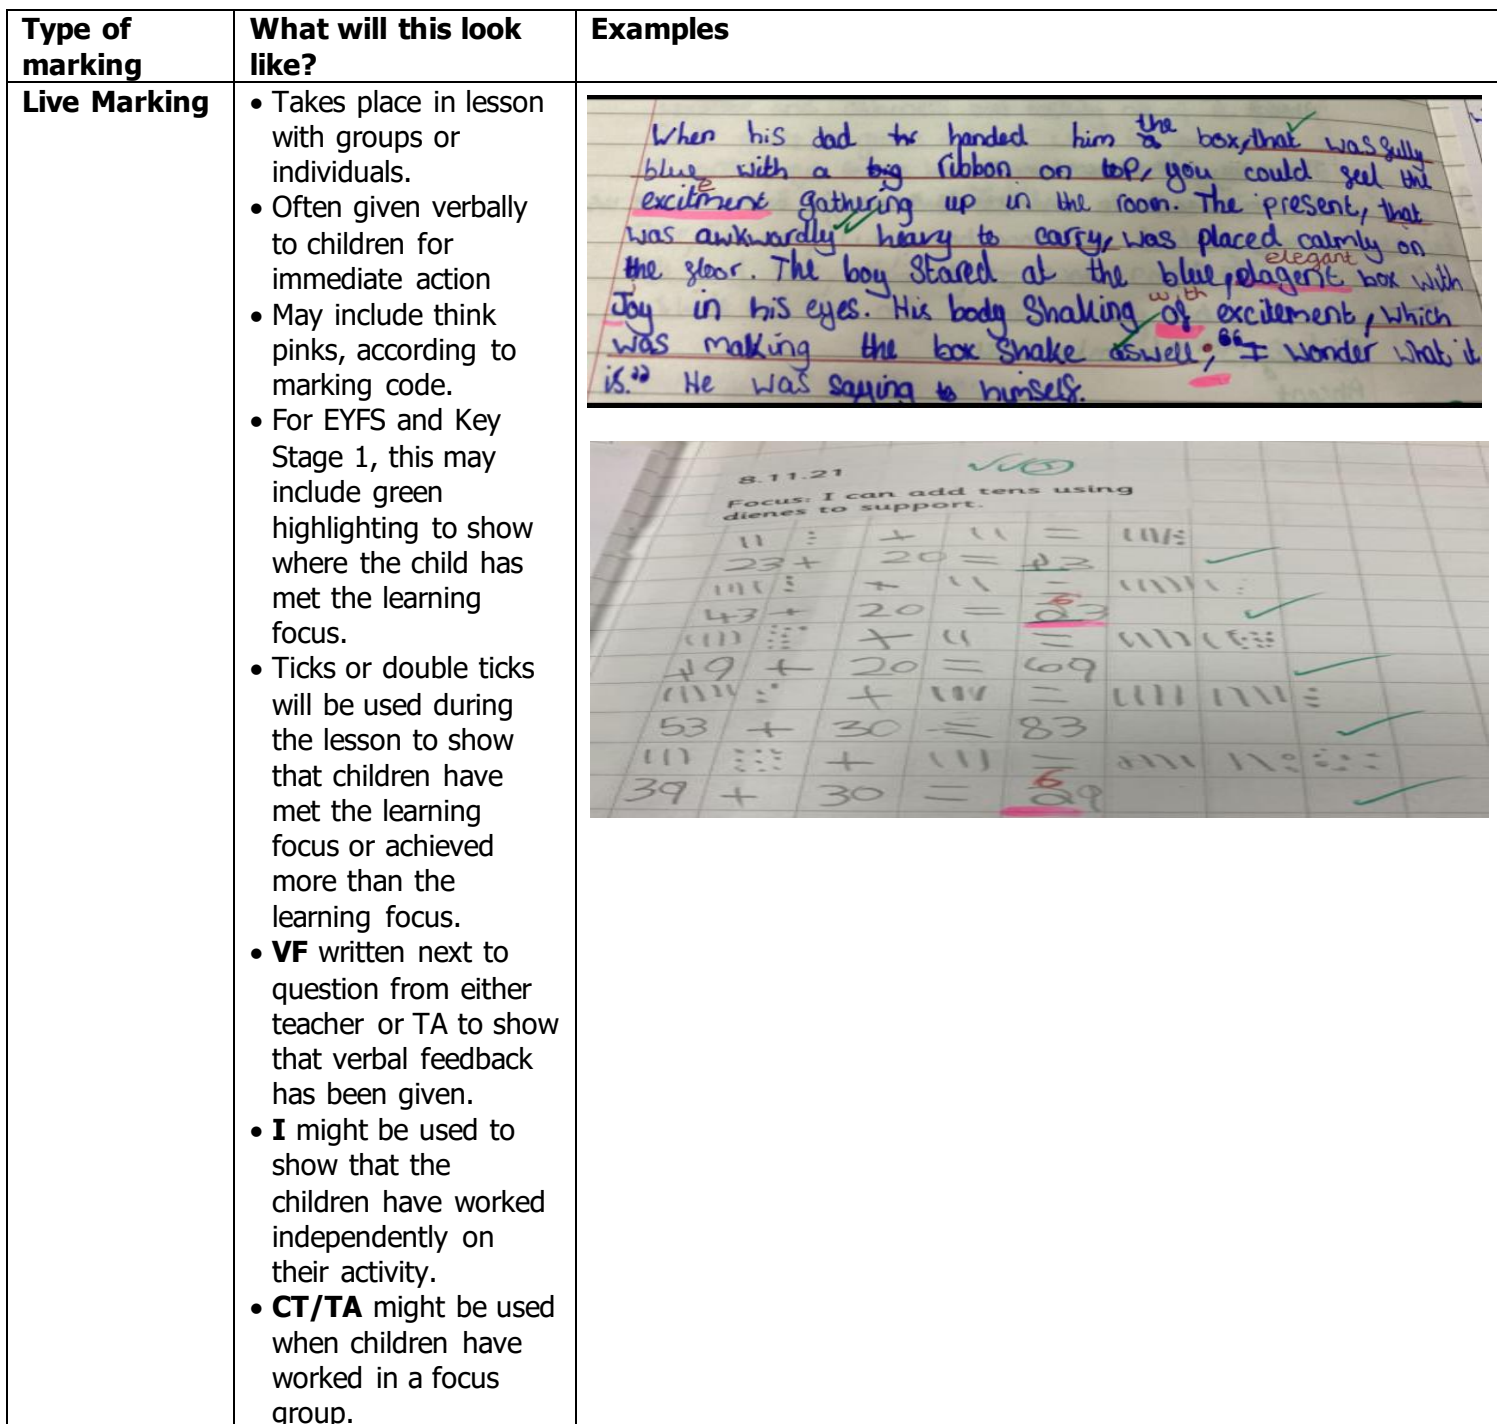 Type of marking
What will this look like?
Examples
Live Marking
• Takes place in lesson
with groups or
individuals.
• Often given verbally
to children for
immediate action
• May include think
pinks, according to
marking code.
• For EYFS and Key
Stage 1, this may
include green
highlighting to show
where the child has
met the learning
focus.
• Ticks or double ticks
will be used during
the lesson to show
that children have
met the learning
focus or achieved
more than the
learning focus.
• VF written next to
question from either
teacher or TA to show
that verbal feedback
has been given.
• I might be used to
show that the
children have worked
independently on
their activity.
• CT/TA might be used
when children have
worked in a focus
group.
When his dad handed him the box, that was fully
blue with a big ribbon on top, you could feel the
e
excitment gathering up in the room. The present, that
was awkwardly heavy to carry, was placed calmly on
elegant
the floor. The boy Stared at the blue, elagent box with
with
Joy in his eyes. His body Shaking of excitement, which
was making the box Shake aswell; "I wonder what it
is." He was saying to himself.
8.11.21
Focus: I can add tens using
dienes to support.
23 + 20 = 43
6
43 + 20 = 23
49 + 20 = 69
53 + 30 = 83
6
39 + 30 = 29